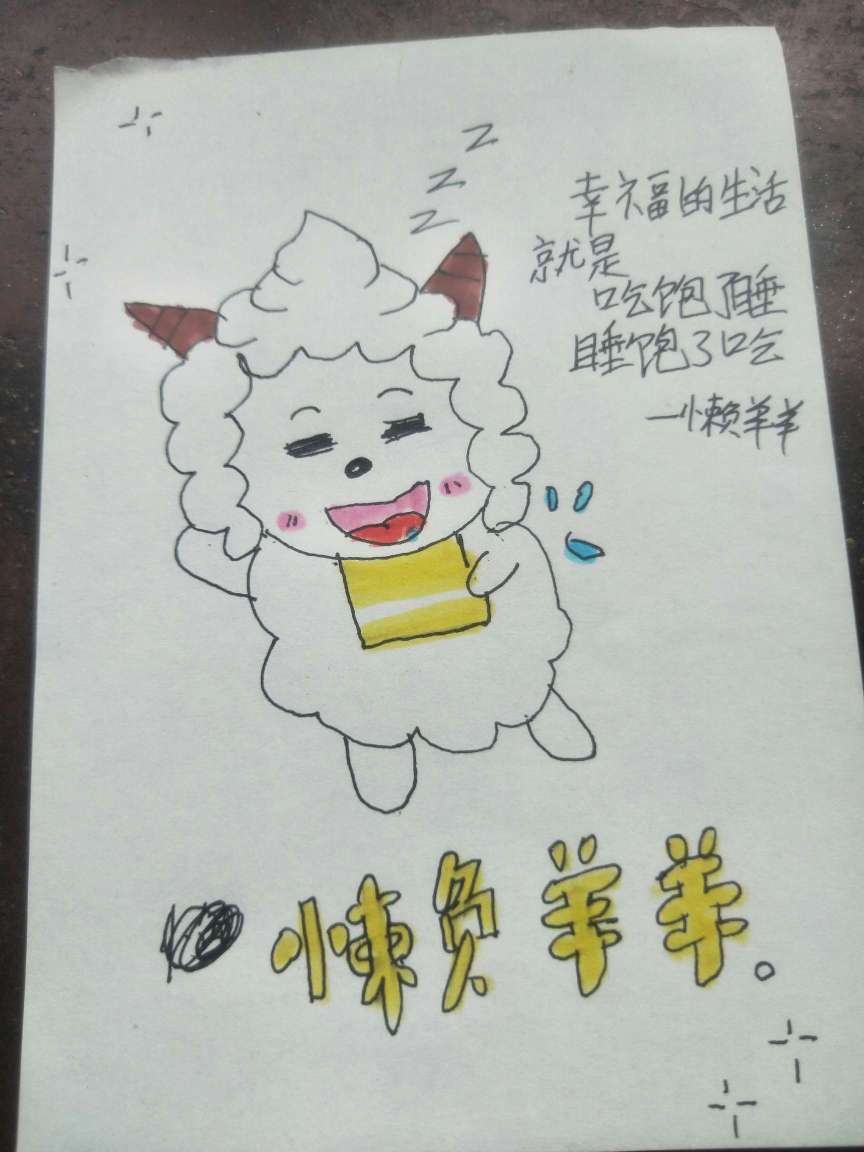 z
z
z
幸福的生活
就是
吃饱了睡
睡饱了吃
—懒羊羊
懒羊羊。